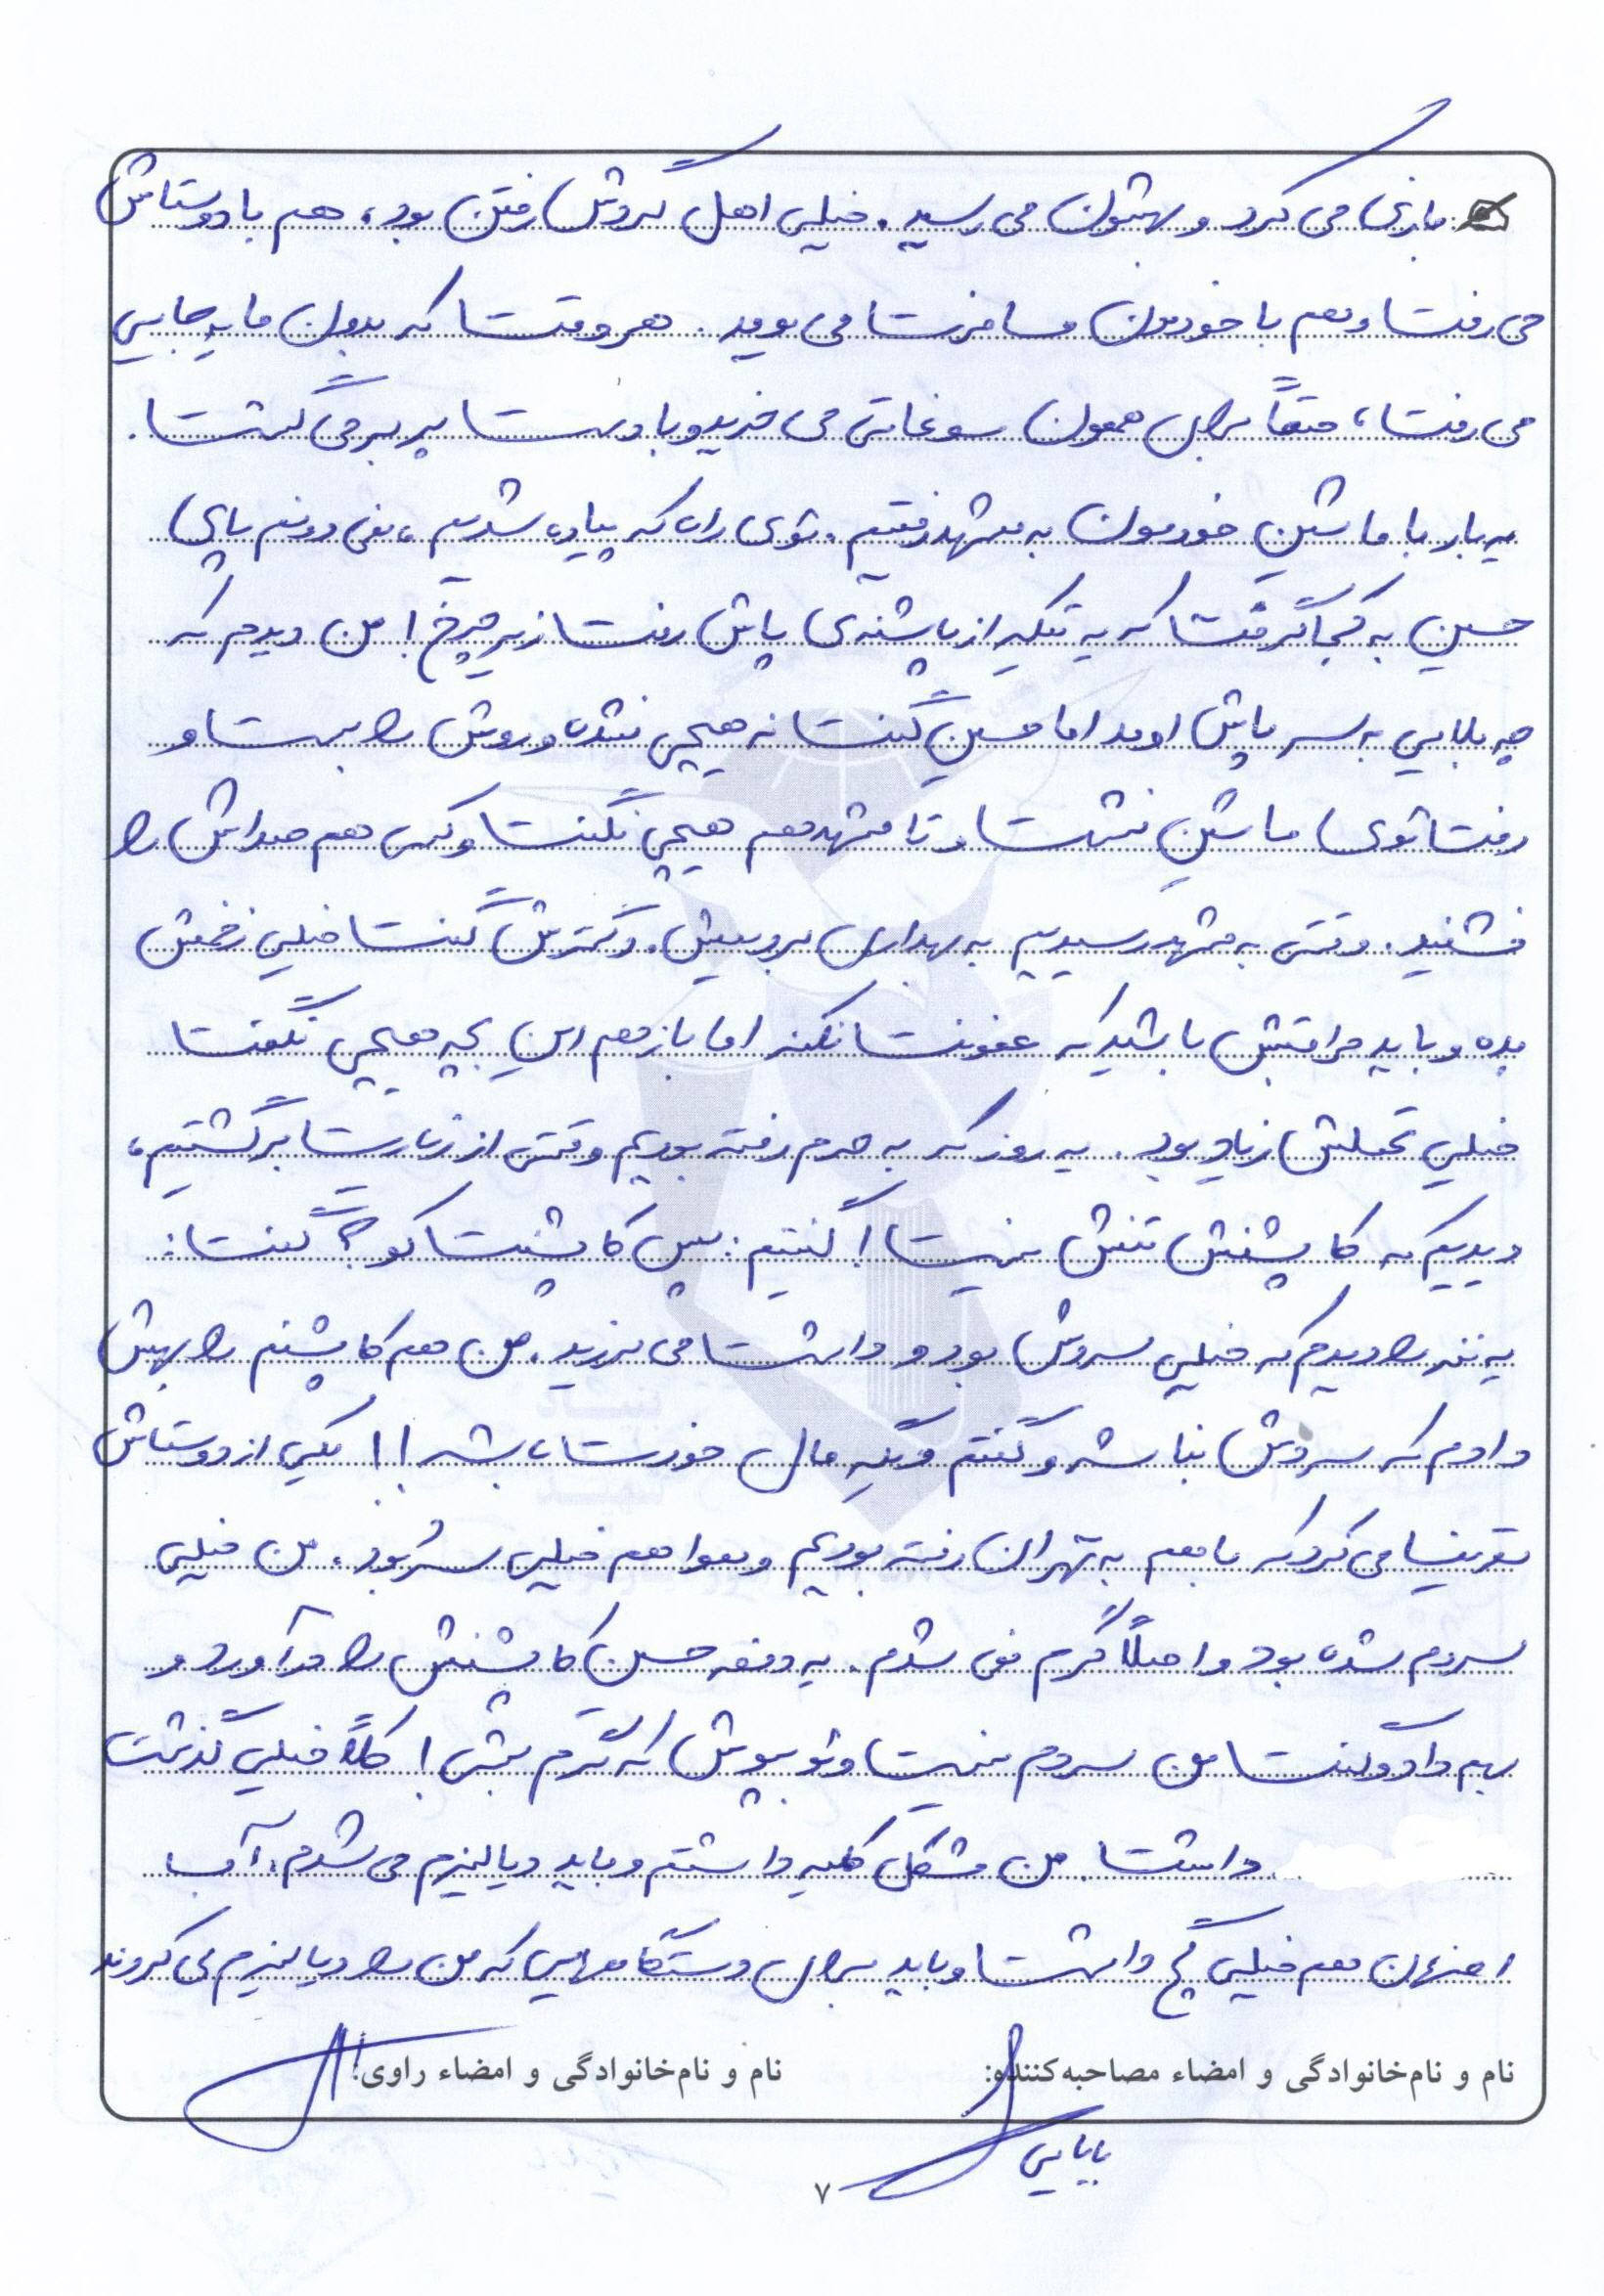 بازی می کرد و بهشون می رسید. خیلی اهل گردش رفتن بود، هم با دوستاش
می رفت و هم با خودمون مسافرت می یومد. هر وقت که بدون ما یه جایی
می رفت، حتماً برای هممون سوغاتی می خرید و با دست پر بر می گشت.
یه بار با ماشین خودمون به مشهد رفتیم. توی راه که پیاده شدیم، نمی دونم پای
حسین به کجا گرفت که یه تیکه از پاشنه ی پاش رفت زیر چرخ! من دیدم که
چه بلایی به سر پاش اومد اما حسین گفت نه هیچی نشده و روش را بست و
رفت توی ماشین نشست و تا مشهد هم هیچی نگفت و کسی هم صداش را
نشنید. وقتی به مشهد رسیدیم به بهداری بردیمش. دکترش گفت خیلی زخمش
بده و باید مراقبش باشید که عفونت نکنه اما باز هم این بچه هیچی نگفت
خیلی تحملش زیاد بود. یه روز که به حرم رفته بودیم وقتی از زیارت برگشتیم،
دیدیم که کاپشنش تنش نیست! گفتیم: پس کاپشنت کو؟ گفت:
یه نفر را دیدم که خیلی سردش بود و داشت می لرزید. من هم کاپشنم را بهش
دادم که سردش نباشه و گفتم دیگه مال خودت باشه!! یکی از دوستاش
تعریف می کرد که با هم به تهران رفته بودیم و هوا هم خیلی سرد بود. من خیلی
سردم شده بود و اصلاً گرم نمی شدم. یه دفعه حسین کاپشنش را درآورد و
بهم داد و گفت من سردم نیست و تو بپوش که گرم بشی! کلاً خیلی گذشت
داشت. من مشکل کلیه داشتم و باید دیالیزم می شدم. آب
اصفهان هم خیلی گچ داشت و باید برای دستگاهایی که من را دیالیزم می کردند
نام و نام‌خانوادگی و امضاء مصاحبه‌کننده:
نام و نام‌خانوادگی و امضاء راوی:
بابایی
۷